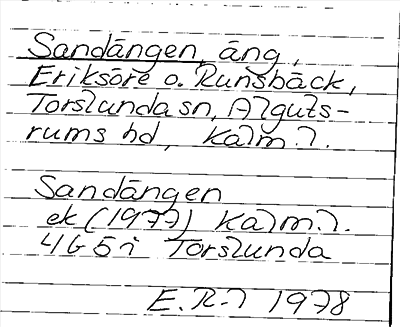 Sandängen, äng,
Eriksöre o. Runsbäck,
Torslunda sn, Alguts-
rums hd, Kalm. l.
Sandängen
ek (1977) Kalm. l.
4G 5i Torslunda
E.R-l 1978